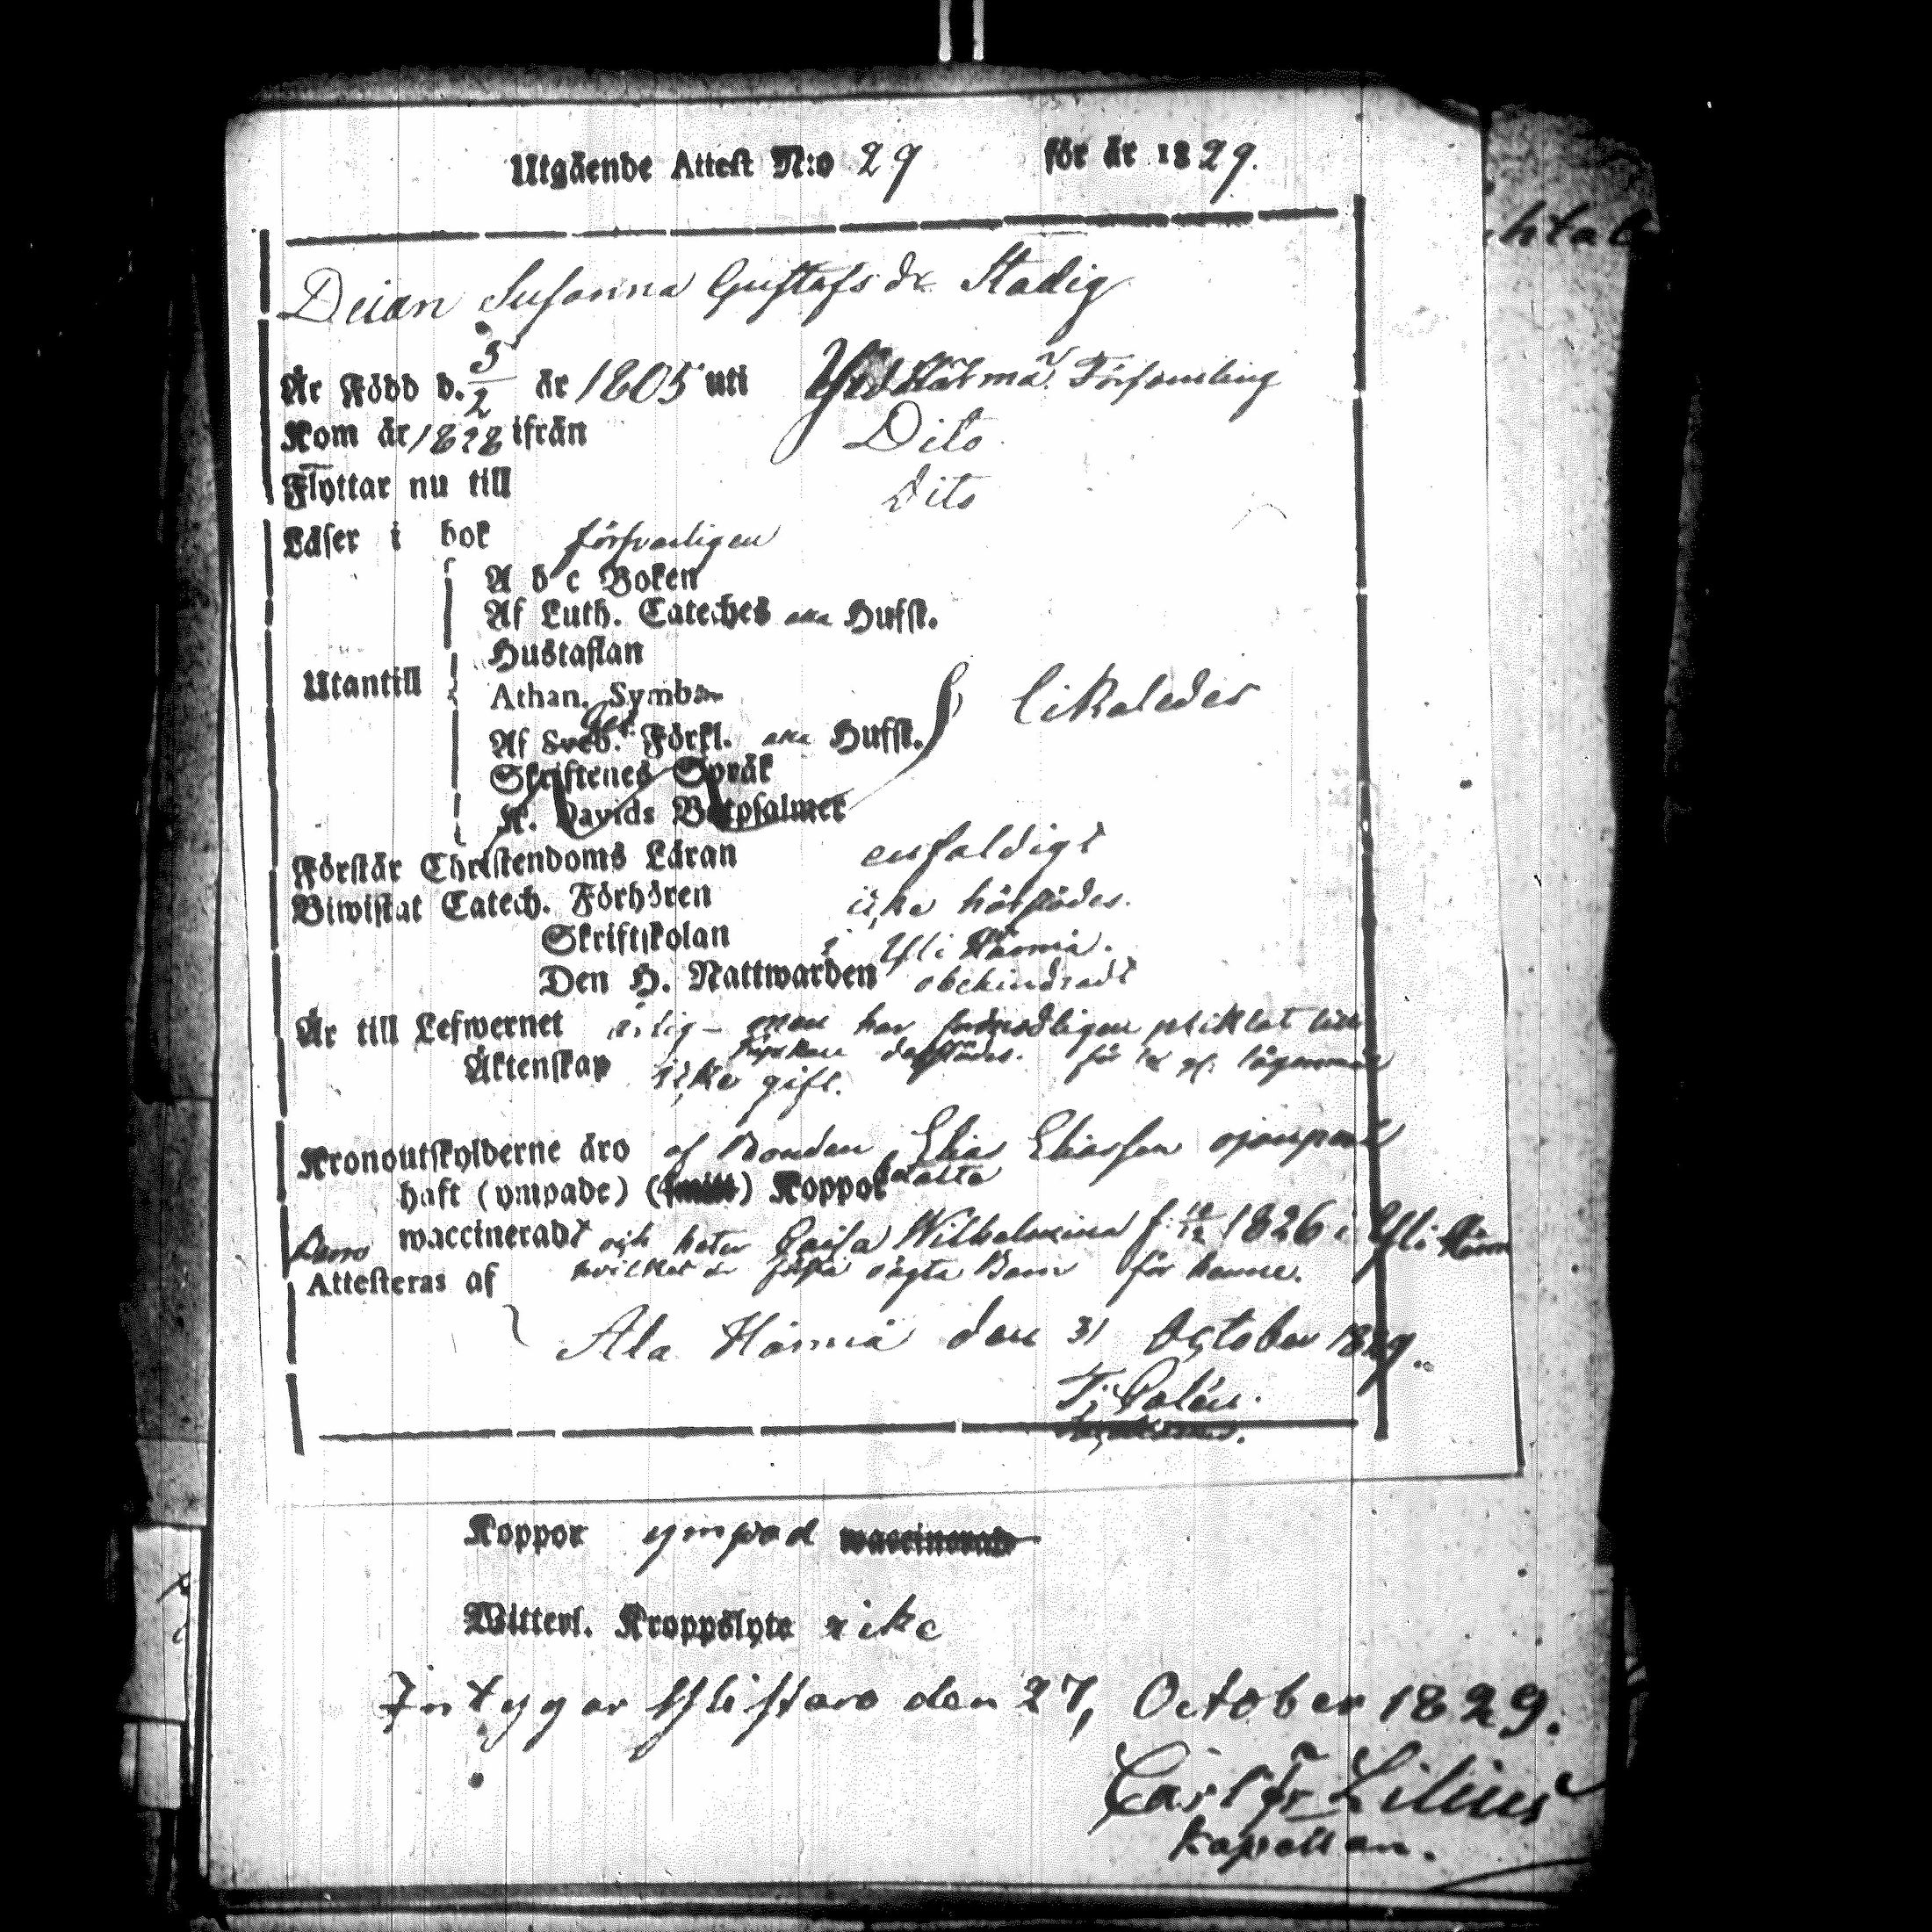 Utgående Attest N:o 29 för år 1829.
htal
Deian Susanna Gustafs dr. Stadig
Är Född d. 5/2 år 1805 uti Härmä Församling
Kom år 1828 ifrån Dito
Flyttar nu till Dito
Läser i bok försvarligen
A b c Boken
Af Luth. Cateches Hufst.
Hustaflan
Utantill Athan. Symb.
Af Sveb. Förkl. Hufst. likaledes
Skriftenes Språk
K. Davids Botpsalmer
Förstår Christendoms Läran enfaldigt
Biwistat Catech. Förhören icke härstädes.
Skriftskolan i Yli Härmä.
Den H. Nattwarden obehindradt
Är till Lefwernet ärlig - men har pliktat
för lägersmål
Äktenskap icke gift.
Kronoutskylderne äro af Bonden Elias Eliasson
haft (ympade) Koppor
waccineradt och heter Caisa Wilhelmina f. 1826 i Yli Härm
Attesteras af hvilket är första oägta Barn för henne.
Ala Härmä den 31 October 1829.
Koppor ympad waccinerade
Witterl. Kroppslyte icke
Intygar Ylistaro den 27, October 1829.
Carl Fr Lilius
Kapellan.